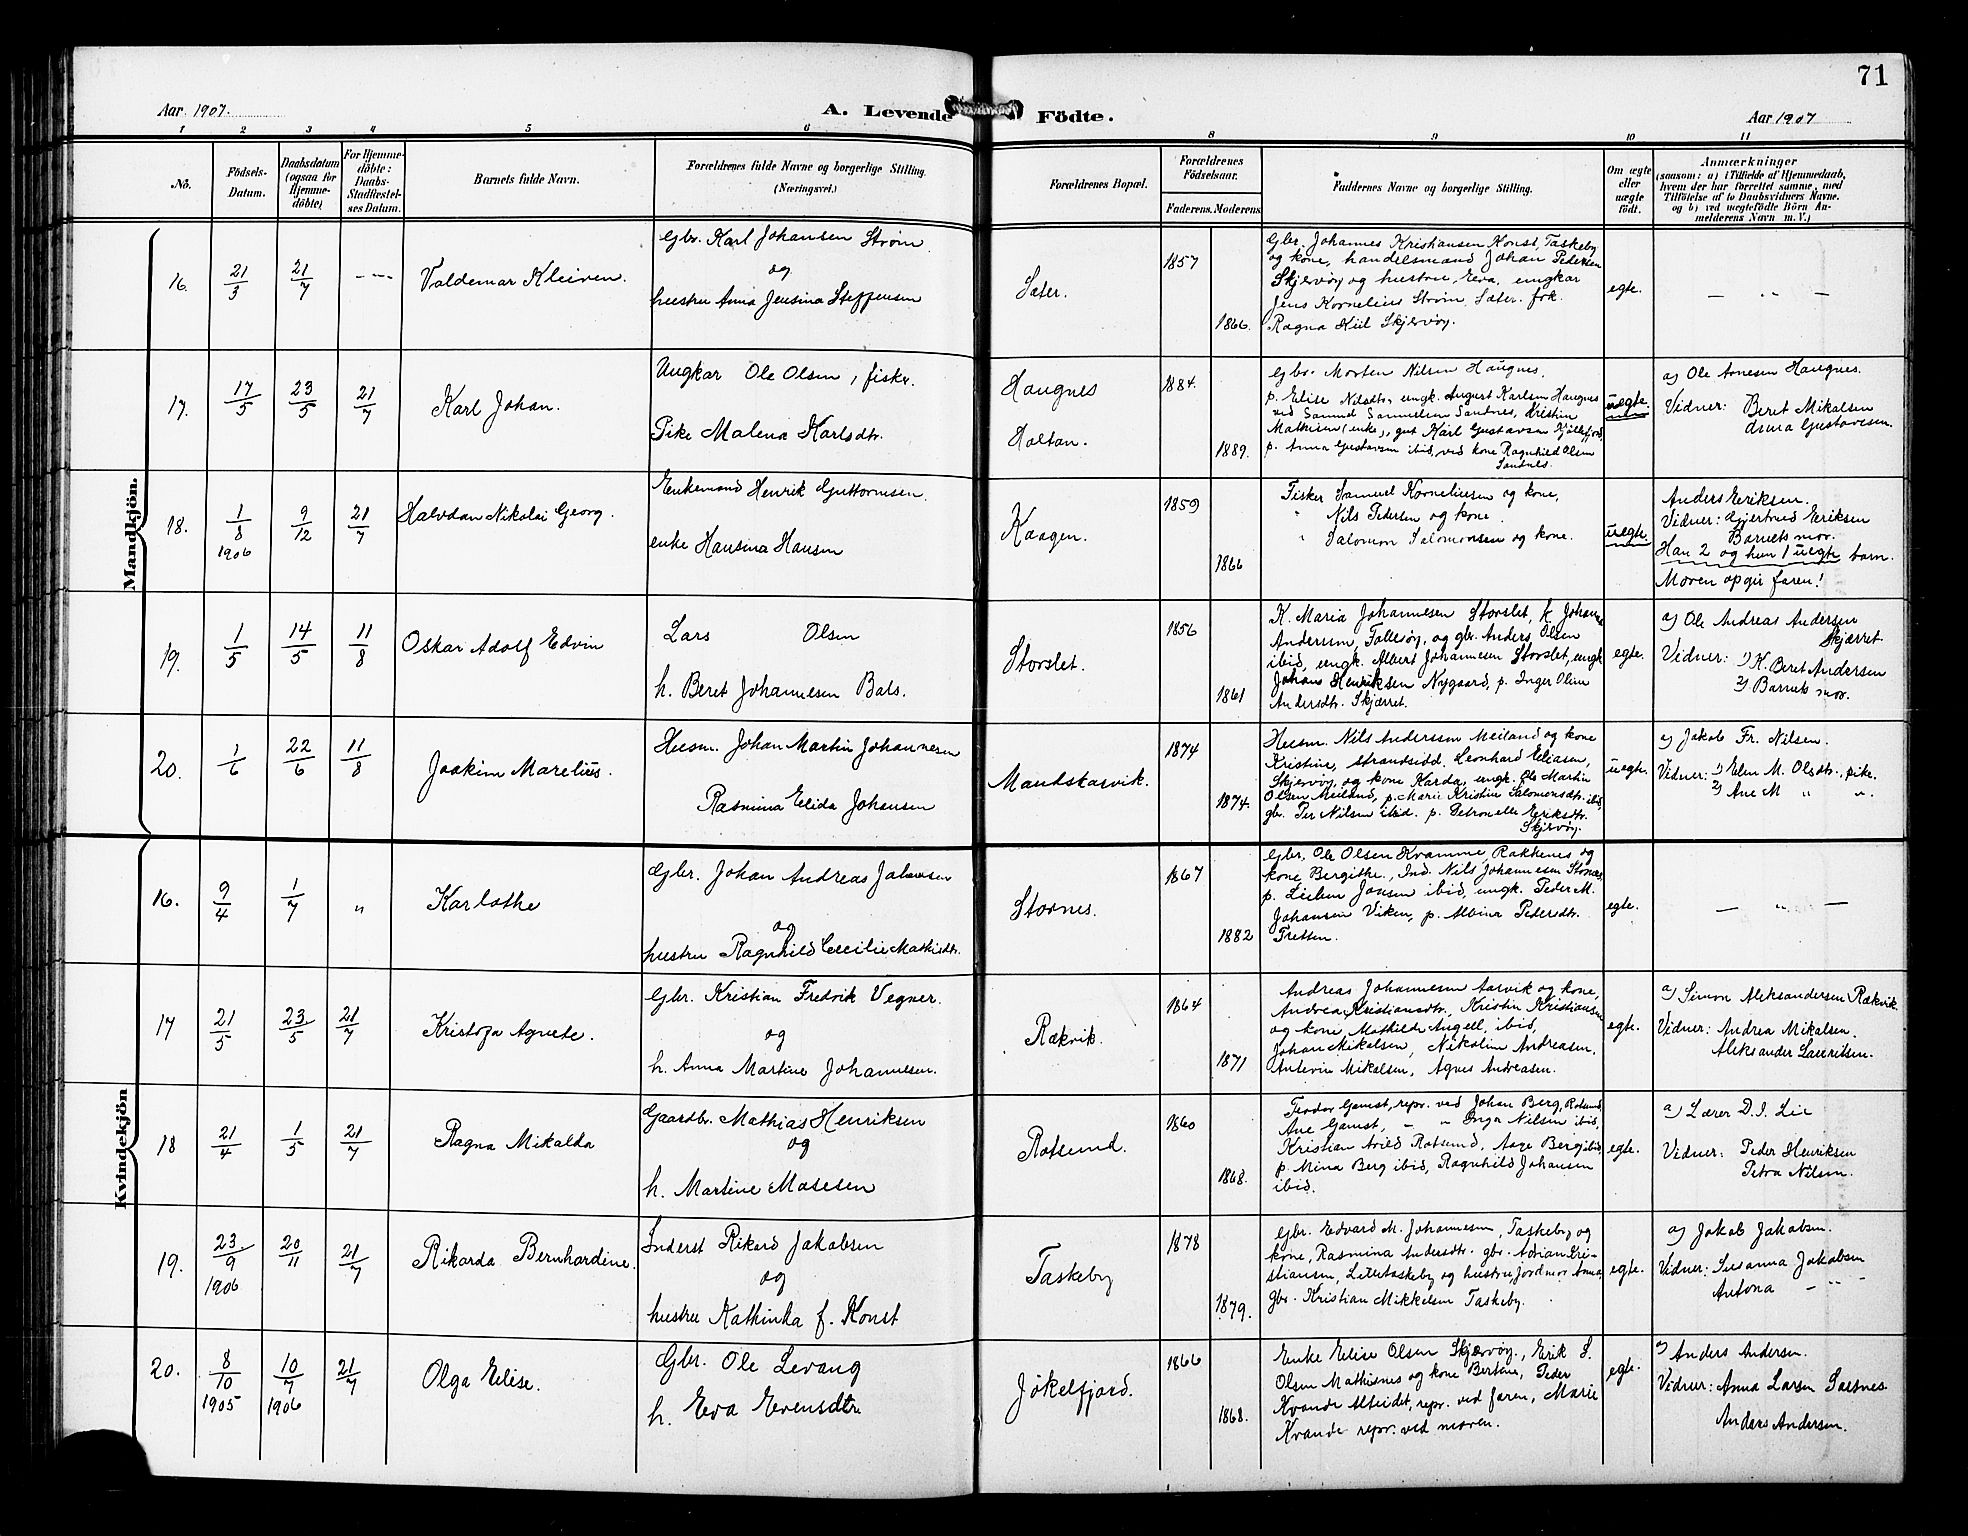 71
Aar 1907.
A. Levende Födte.
Aar 1907
1 2 3 4 5 6 8 9 10 11
No.
Födsels-Datum.
Daabsdatum (ogsaa for Hjemmedöbte)
For Hjemmedöbte: Daabs-Stadfæstelses Datum.
Barnets fulde Navn.
Forældrenes fulde Navne og borgerlige Stilling. (Næringsvei.)
Forældrenes Bopæl.
Forældrenes Födselsaar.
Faderens. Moderens.
Faddernes Navne og borgerlige Stilling.
Om ægte eller uægte födt.
Anmærkninger
(saasom: a) i Tilfælde af Hjemmedaab,
hvem der har forrettet samme, med
Tilföielse af to Daabsvidners Navne.
og b) ved uægtefödte Börn An-
melderens Navn m. V.)
Mandkjön.
16. 21/3 21/7 - -- Valdemar Kleiven.
Gbr. Karl Johansen Strøm
og
hustru Anna Jensina Steffensen
Sæter.
1857
1866.
Gbr. Johannes Kristiansen Konst, Taskeby
og kone, handelsmand Johan Pedersen
Skjervøy og hustru, Eva, ungkar
Jens Kornelius Strøm, Sæter. frk.
Ragna Kiil Skjervøy.
egte.
— " —
17. 17/5 23/5 21/7 Karl Johan.
Ungkar Ole Olsen, fisker.
Pike Malena Karlsdtr.
Haugnes
Holtan.
1884.
1889.
Gbr. Morten Nilsen Haugnes,
p. Elise Nilsdtr, ungk. August Karlsen Haugnes
ved Samuel Samuelsen Sandnes, Kristin
Mathisen (enke), gut Karl Gustavsen Kjøllefjord,
p. Anna Gustavsen ibid, ved kone Ragnhild Olsen
Sandnes.
uegte.
a) Ole Arnesen Haugnes.
Vidner: Beret Mikalsen
Anna Gustavesen.
18. 1/8 1906 9/12 21/7 Halvdan Nikolai Georg.
Enkemand Henrik Guttormsen.
enke Hansina Hansen
Kaagen.
1859
1866
Fisker Samuel Korneliusen og kone,
" Nils Pedersen og kone.
" Salomon Salomonsen og kone.
uegte.
Anders Eriksen.
Vidner: Gjertrud Eriksen
Barnets mor.
Han 2 og hun 1 uegte barn.
Moren opgir faren!
19. 1/5 14/5 11/8 Oskar Adolf Edvin
Lars Olsen
h. Beret Johannesen Bals.
Storslet.
1856
1861
K. Maria Johannesen Storslet, k. Johanne
Andersen, Follesøy, og gbr. Anders Olsen
ibid, ungk. Albert Johannesen Storslet, ungk
Johans Henriksen Nygaard, p. Inger Oline
Andersdtr. Skjærret.
egte.
a) Ole Andreas Andersen
Skjærret
Vidner: 1) K. Beret Andersen
2) Barnets mor.
20. 1/6 22/6 11/8 Joakim Marelius.
Husm. Johan Martin Johannesen
Rasmina Elida Johansen
Maudskarvik.
1874
1874.
Husm. Nils Anderssen Meiland og kone
Kristine, strandsidd. Leonhard Eliasen,
Skjervøy, og kone Karda, ungk. Ole Martin
Olsen Meiland, p. Marie Kristin Salomonsdtr. ibid,
gbr. Per Nilsen ibid. p. Petronelle Eriksdtr.
Skjervøy.
uegte.
a) Jakob Fr. Nilsen.
Vidner: 1) Elen M. Olsdtr. pike.
2) Ane M " "
Kvindekjön
16. 9/4 1/7 " Karlothe
Gbr. Johan Andreas Jakobsen
og
hustru Ragnhild Cecilie Mathisdtr.
Stornes.
1867
1882
Gbr. Ole Olsen Kvamme, Rakkenes og
kone Bergithe, Ind. Nils Johannesen Stornes
p. Jonsen ibid, ungk. Peder M.
Johansen Viken, p. Albina Pedersdtr.
Fretten.
egte.
— " —
17 21/5 23/5 21/7 Kristofa Agnete.
Gbr. Kristian Fredrik Vegner.
og
h. Anna Martine Johannesen.
Rækvik.
1864
1871
Andreas Johannesen Aarvik og kone,
Andrea Kristiansdtr, Kristin Kristiansen
og kone, Mathilde Angell, ibid,
Johan Mikelsen, Nikoline Andreasen,
Anterin Mikalsen, Agnes Andreasen.
egte.
a) Simon Aleksandersen Rækvik
Vidner: Andrea Mikalsen.
Aleksander Lauritsen.
18 21/4 1/5 21/7 Ragna Mikalda
Gaardbr. Mathias Henriksen
og
h. Martine Mosesen
Rotsund.
1860
1868.
Teodor Gamst, repr. ved Johan Berg, Rotsund,
Ane Gamst, " " Inga Nilsen ibid,
Kristian Arild Rotsund, Aage Berg ibid,
p. Mina Berg ibid, Ragnhild Johansen
ibid.
egte.
a) Lærer D. I. Lie
Vidner: Peder Henriksen
Petra Nilsen.
19. 23/9 1906 20/11 21/7 Rikarda Bernhardine.
Inderst Rikard Jakobsen
og
hustru Kathinka f. Konst
Taskeby
1878
1879.
Gbr. Edvard M. Johannesen, Taskeby og
kone, Rasmina Andersdtr. gbr. Adrian Kri-
stiansen, Lilletaskeby og hustru, jordmor Anna,
gbr. Kristian Mikkelsen Taskeby.
egte.
a) Jakob Jakobsen.
Vidner: Susanna Jakobsen
Antona "
20. 8/10 1905 10/7 1906 21/7 Olga Elise.
Gbr. Ole Levang
h. Eva Evensdtr
Jøkelfjord.
1866
1868.
Enke Elise Olsen Skjærvøy, Erik S.
Olsen Mathisnes og kone Bertine, Peder
Kvande Alteidet, repr. ved faren, Marie
Kvande repr. ved moren.
egte.
a) Anders Andersen.
Vidner: Anna Larsen Saltnes
Anders Andersen.